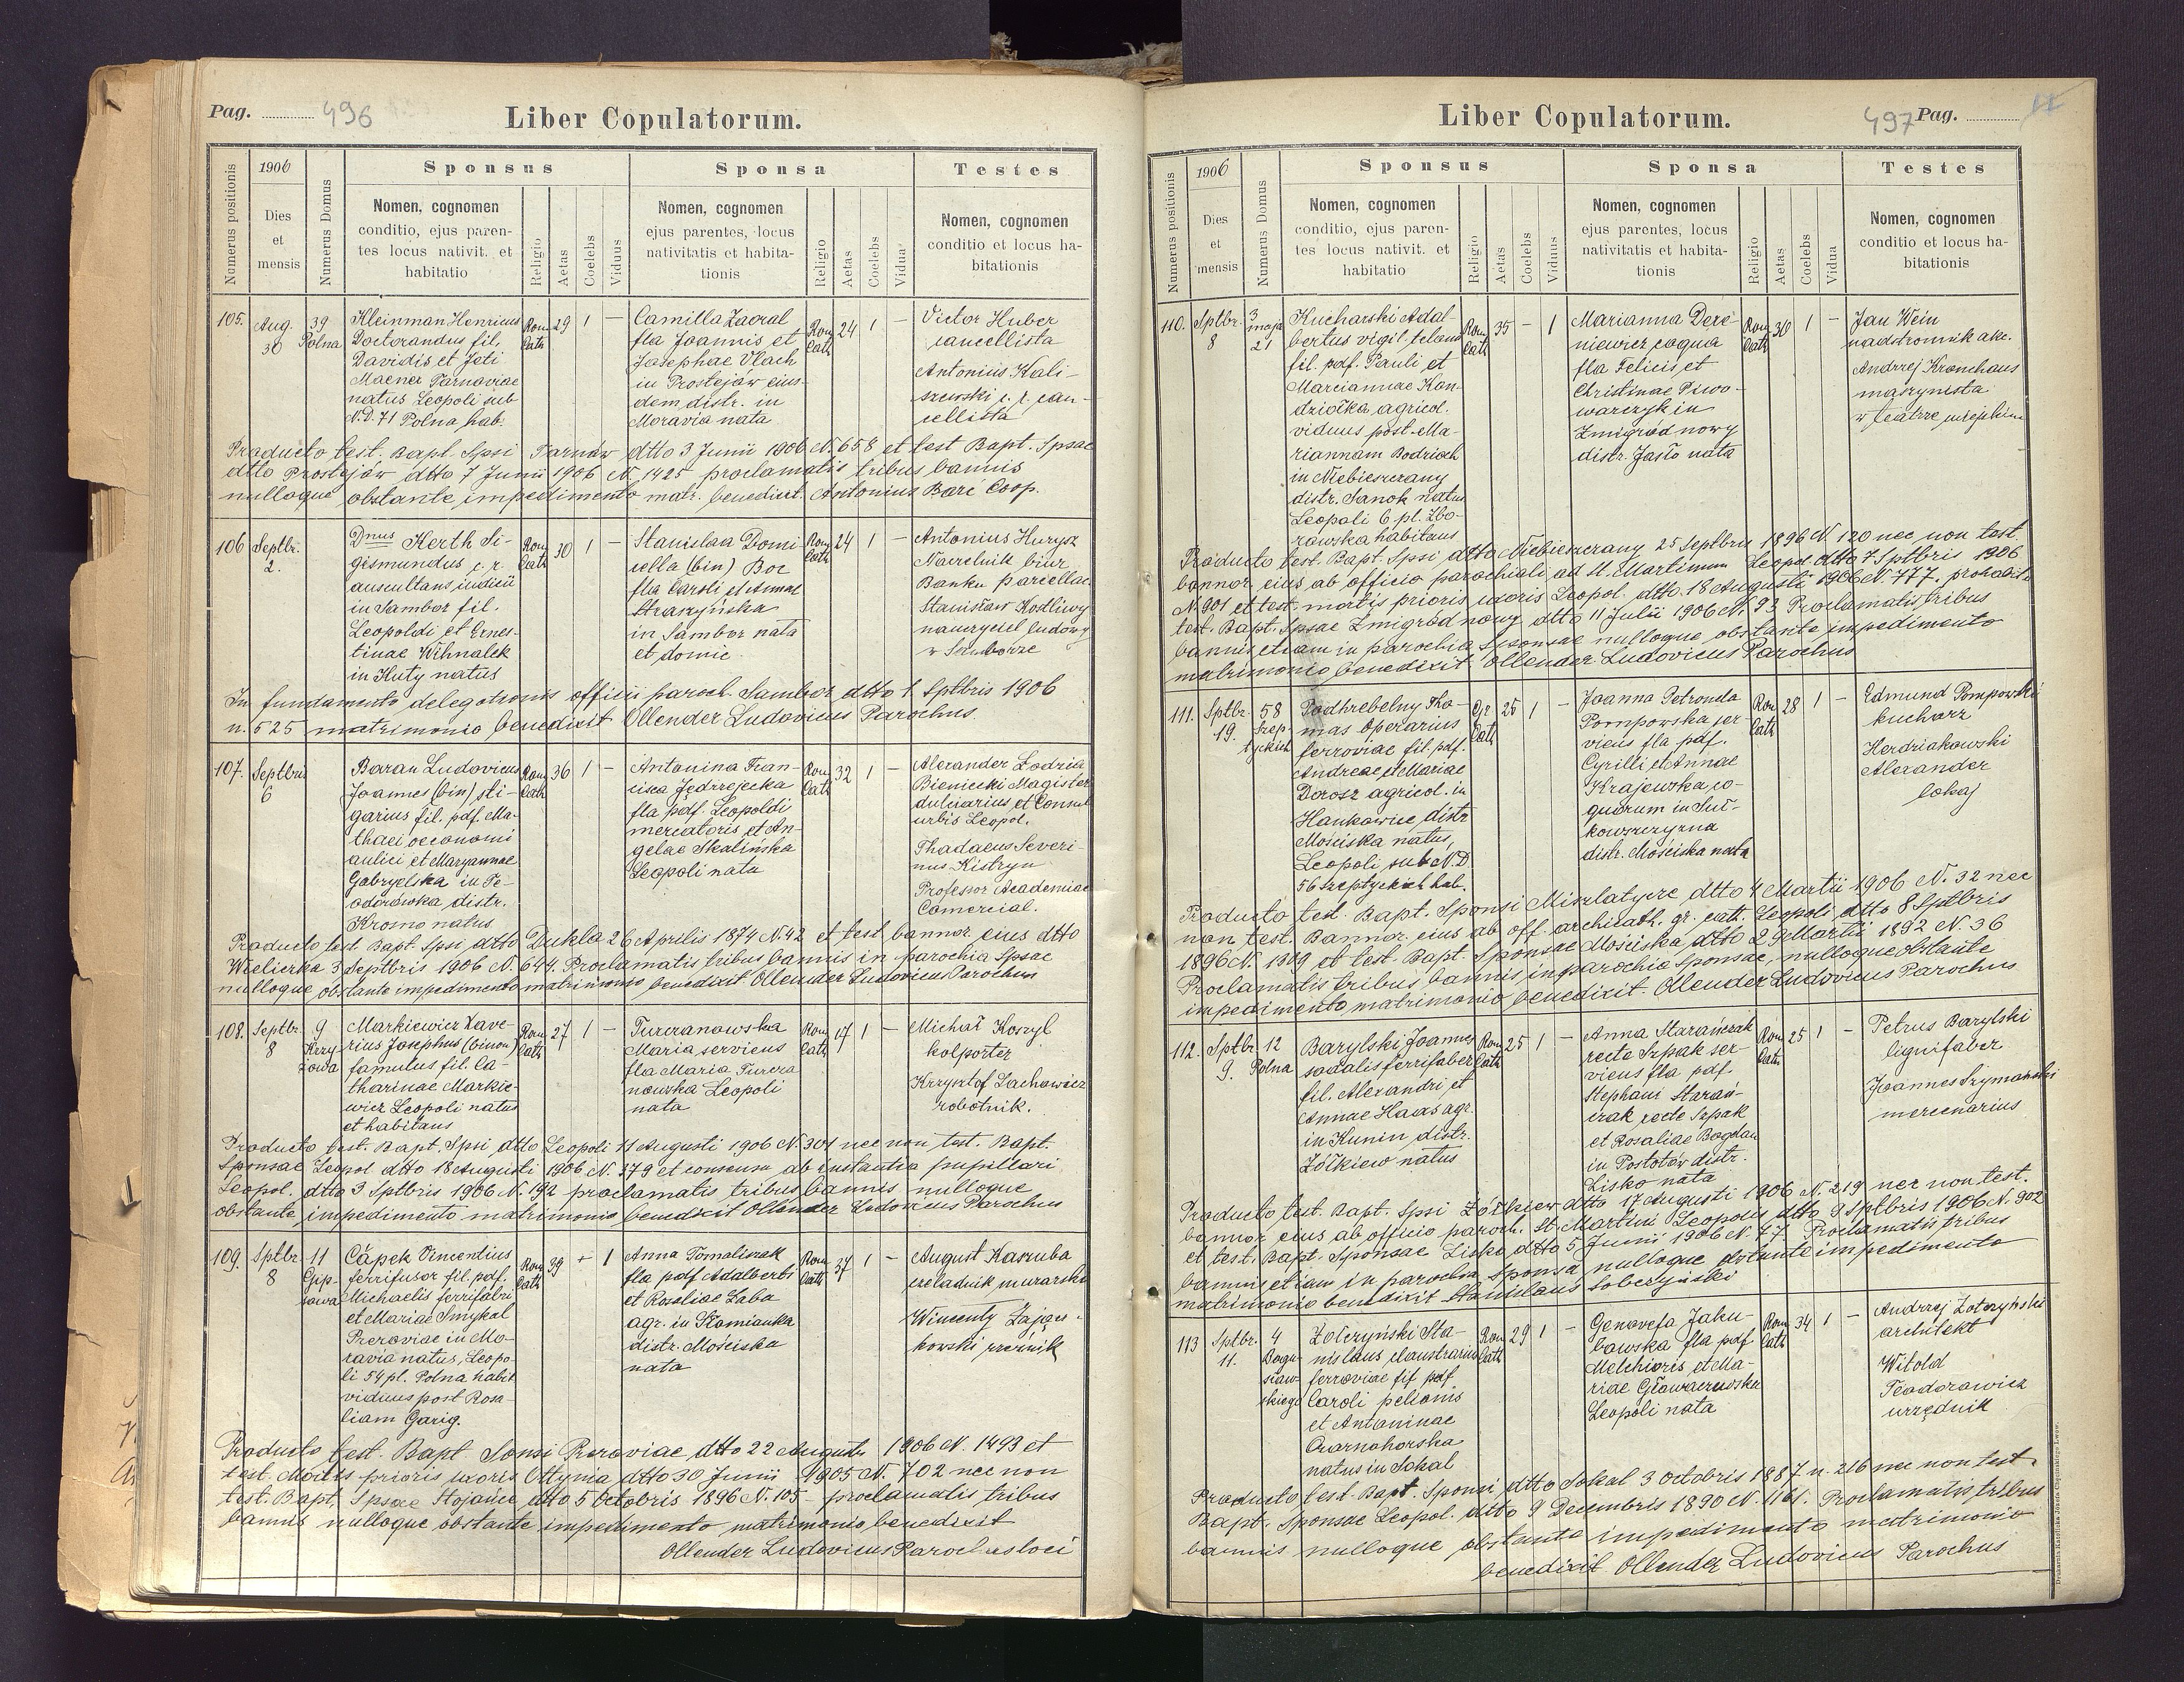 Pag. 496
Liber Copulatorum.
Numerus positionis
1906
Dies
et
mensis
Numerus Domus
Sponsus
Nomen, cognomen
conditio, ejus paren-
tes locus nativit. et
habitatio
Religio
Aetas
Coelebs
Viduus
Sponsa
Nomen, cognomen
ejus parentes, locus
nativitatis et habita-
tionis
Religio
Aetas
Coelebs
Vidua
Testes
Nomen, cognomen
conditio et locus ha-
bitationis
105.
Aug.
30
39
Polna
Kleinman Henricus
Doctorandus fil.
Davidis et Jeti
Maener Tarnoviae
natus Leopoli sub
N.D. 71 Polna hab.
Rom
Cath
29
1
–
Camilla Zaoral
fla Joannis et
Josephae Vlach
in Prostejów eius-
dem distr. in
Moravia nata
Rom
Cath
24
1
–
Victor Huber
cancellista
Antonius Kali-
szewski c. r. can-
cellista
Producto test. Bapt. Spsi Tarnów dtto 3 Junii 1906 N. 658 et test Bapt. Spsae
dtto Prostejów dtto 7 Junii 1906 N. 1425 proclamatis tribus bannis
nulloque obstante impedimento matr. benedixit. Antonius Baré Coop.
106
Septbr.
2.
Dnus Kerth Si-
gismundus c. r.
auscultans iudicii
in Sambor fil.
Leopoldi et Ernes-
tinae Wihnalek
in Kuty natus
Rom
Cath
30
1
–
Stanislaa Domi
cella (bin) Boc
fla Caroli et Annae
Straszyńska
in Sambor nata
et domic.
Rom
Cath
24
1
–
Antonius Hurysz
Naczelnik biur
Banku parcellac.
Stanisław Kodliwy
nauczyciel ludowy
w Samborze
In fundamento delegationis officii paroch. Sambor dtto 1. Sptbris 1906
n. 525 matrimonio benedixit Ollender Ludovicus Parochus.
107.
Septbris
6
Baran Ludovicus
Joannes (bin) sti-
garius fil. pdf. Ma-
thaei oeconomi
aulici et Maryannae
Gabryelska in Te-
odorówka distr.
Krosno natus
Rom
Cath
36
1
–
Antonina Fran-
cisca Jędrzejecka
fla pdf. Leopoldi
mercatoris et An-
gelae Skalińska
Leopoli nata
Rom
Cath
32
1
–
Alexander Lodzia
Bieniecki Magister
dulciarius et Consul
urbis Leopol.
Thadaeus Severi-
nus Kistryn
Profesor Academiae
Comercial.
Producto test Bapt. Spsi dtto Dukla 26 Aprilis 1874 N. 42 et test bannor. eius dtto
Wieliczka 3 Septbris 1906 N. 644. Proclamatis tribus bannis in parochia Spsae
nulloque obstante impedimento matrimonio benedixit Ollender Ludovicus Parochus
108.
Septbr.
8
9
Krzy
żowa
Markiewicz Xave-
rius Josephus (binom)
famulus fil. Ca-
tharinae Markie-
wicz Leopoli natus
et habitans
Rom
Cath
27
1
–
Turczanowska
Maria serviens
fla Maria Turcza
nowska Leopoli
nata
Rom
Cath
17
1
–
Michał Koszyl
kolporter
Krzysztof Lachowicz
robotnik.
Producto test. Bapt. Spsi dtto Leopoli 11 Augusti 1906 N. 301 nec non test. Bapt.
Sponsae Leopol dtto 18 Augusti 1906 N. 379 et consensu ab instantia pupillari
Leopol. dtto 3 Sptbris 1906 N. 192 proclamatis tribus bannis nulloque
obstante impedimento matrimonio benedixit Ollender Ludovicus Parochus
109.
Sptbr.
8
11
Gipsowa
Čápek Vincentius
ferrifusor fil. pdf.
Michaelis ferrifabri
et Mariae Smykal
Preroviae in Mo-
ravia natus, Leopo-
li 54 pl. Polna habit
viduus post Rosa-
liam Garig.
Rom
Cath
39
+
1
Anna Tomaliszak
fla pdf Adalberti
et Rosaliae Łaba
agr. in Słomianka
distr. Mościska
nata
Rom
Cath
37
1
–
August Kaszuba
czeladnik murarski
Wincenty Zając-
kowski rzeźnik
Producto test. Bapt Sonsi Preroviae dtto 22 Augusti 1906 N. 1493 et
test. Mortis prioris uxoris Ottynia dtto 30 Junii 1905 N. 702 nec non
test. Bapt. Spsae Stojańce dtto 5 Octobris 1896 N. 105 – proclamatis tribus
bannis nulloque obstante impedimento matrimonio benedixit
Ollender Ludovicus Parochus loci
Liber Copulatorum.
497 Pag.
Numerus positionis
1906
Dies
et
mensis
Numerus Domus
Sponsus
Nomen, cognomen
conditio, ejus paren-
tes locus nativit. et
habitatio
Religio
Aetas
Coelebs
Viduus
Sponsa
Nomen, cognomen
ejus parentes, locus
nativitatis et habita-
tionis
Religio
Aetas
Coelebs
Vidua
Testes
Nomen, cognomen
conditio et locus ha-
bitationis
110.
Sptbr.
8
3
maja
21
Kucharski Adal
bertus vigil telano
fil. pdf. Pauli et
Mariannae Kon-
dziołka agricol.
viduus post Ma-
riannam Bodrioch
in Niebieszczany
distr. Sanok natus
Leopoli 6 pl. Zbo-
rowska habitans
Rom
Cath
35
–
1
Marianna Dere-
niewicz coqua
fla Felicis et
Christinae Piwo-
warczyk in
Zmigród nowy
distr. Jasło nata
Rom
Cath
30
1
–
Jan Wein
nadstromnik akc.
Andrzej Kronchaus
maszynista
w teatrze miejskim
Producto test. Bapt. Spsi dtto Niebieszczany 25 Septbris 1896 N. 120 nec non test.
bannor. eius ab officio parochiali ad St. Martinum Leopol. dtto 7 Sptbris 1906
N. 901 et test. mortis prioris uxoris Leopol. dtto. 18 Augusti 1906 N. 777.
test. Bapt. Spsae Zmigród nowy dtto 11 Julii 1906 N. 93 Proclamatis tribus
bannis etiam in parochia Sponsae nulloque obstante impedimento
matrimonio benedixit Ollender Ludovicus Parochus
111.
Sptbr.
19.
58
Szep-
tyckich
Podhrebelny Tho-
mas operarius
ferroviae fil. pdf.
Andreae et Mariae
Dorosz agricol. in
Hankowice distr
Mościska natus,
Leopoli sub N.D.
56 Szeptyckich hab.
Gr
Cath
25
1
–
Joanna Petronela
Pompowska ser-
viens fla pdf.
Cyrilli et Annae
Krajewska co-
quorum in Suł-
kowszczyzna
distr. Mościska nata
Rom
Cath
28
1
–
Edmund Pompowski
kucharz
Herdziakowski
Alexander
lokaj
Producto test. Bapt. Sponsi Miszlatycze dtto 4 Martii 1906 N. 32 nec
non test. Bannor. eius ab off. archicath. gr. cath. Leopoli dtto 8 Sptbris
1896 N. 1909 et test. Bapt. Sponsae Mościska dtto 29 Martii 1892 N. 36
Proclamatis tribus bannis in parochia Sponsae, nulloque obstante
impedimento matrimonio benedixit. Ollender Ludovicus Parochus
112.
Sptbr.
9.
12
Polna
Barylski Joannes
sodalis ferrifaber
fil. Alexandri et
Annae Haas agr.
in Kunin distr.
Żółkiew natus
Rom
Cath
25
1
–
Anna Starańczak
recte Szpak ser-
viens fla pdf.
Stephani Starań-
czak recte Szpak
et Rosaliae Bogdan
in Postołów distr.
Lisko nata
Rom
Cath
25
1
–
Petrus Barylski
lignifaber
Joannes Szymański
mercenarius
Producto test. Bapt. Spsi Żółkiew dtto 17 Augusti 1906 N. 219 nec non test.
bannor eius ab officio paroch. St. Martini Leopolis dtto 9 Sptbris 1906 N. 902
et test. Bapt. Sponsae Lisko dtto 5 Junii 1906 N. 47. Proclamatis tribus
bannis etiam in parochia Sponsa nulloque obstante impedimento
matrimonio benedixit Stanislaus Soberyński
113
Sptbr.
11.
4
Bogu-
sław-
skiego
Zołczyński Sta-
nislaus claustrarius
ferroviae fil pdf
Caroli pelionis
et Antoninae
Czarnohorska
natus in Sokal
Rom
Cath
29
1
–
Genovefa Jaku-
bowska fla pdf
Melchioris et Ma-
riae Głowaczewska
Leopoli nata
Rom
Cath
34
1
–
Andrzej Zołczyński
architekt
Witold
Teodorowicz
urzędnik
Producto test. Bapt. Sponsi dtto Sokal 3 Octobris 1887 n. 216 nec non test.
Bapt. Sponsae Leopol. dtto 9 Decembris 1890 N. 1161. Proclamatis tribus
bannis nulloque obstante impedimento matrimonio
benedixit Ollender Ludovicus Parochus